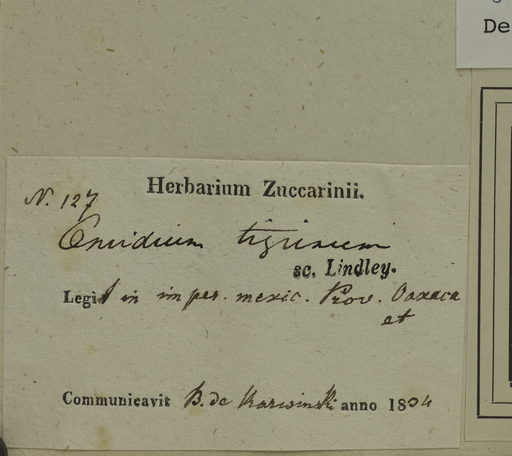 De
Herbarium Zuccarinii.
N. 127
Oncidium tigrinum
sc. Lindley.
Legit in imper. mexic. Prov. Oaxaca
et
Communicavit B. de Karwinski anno 1834